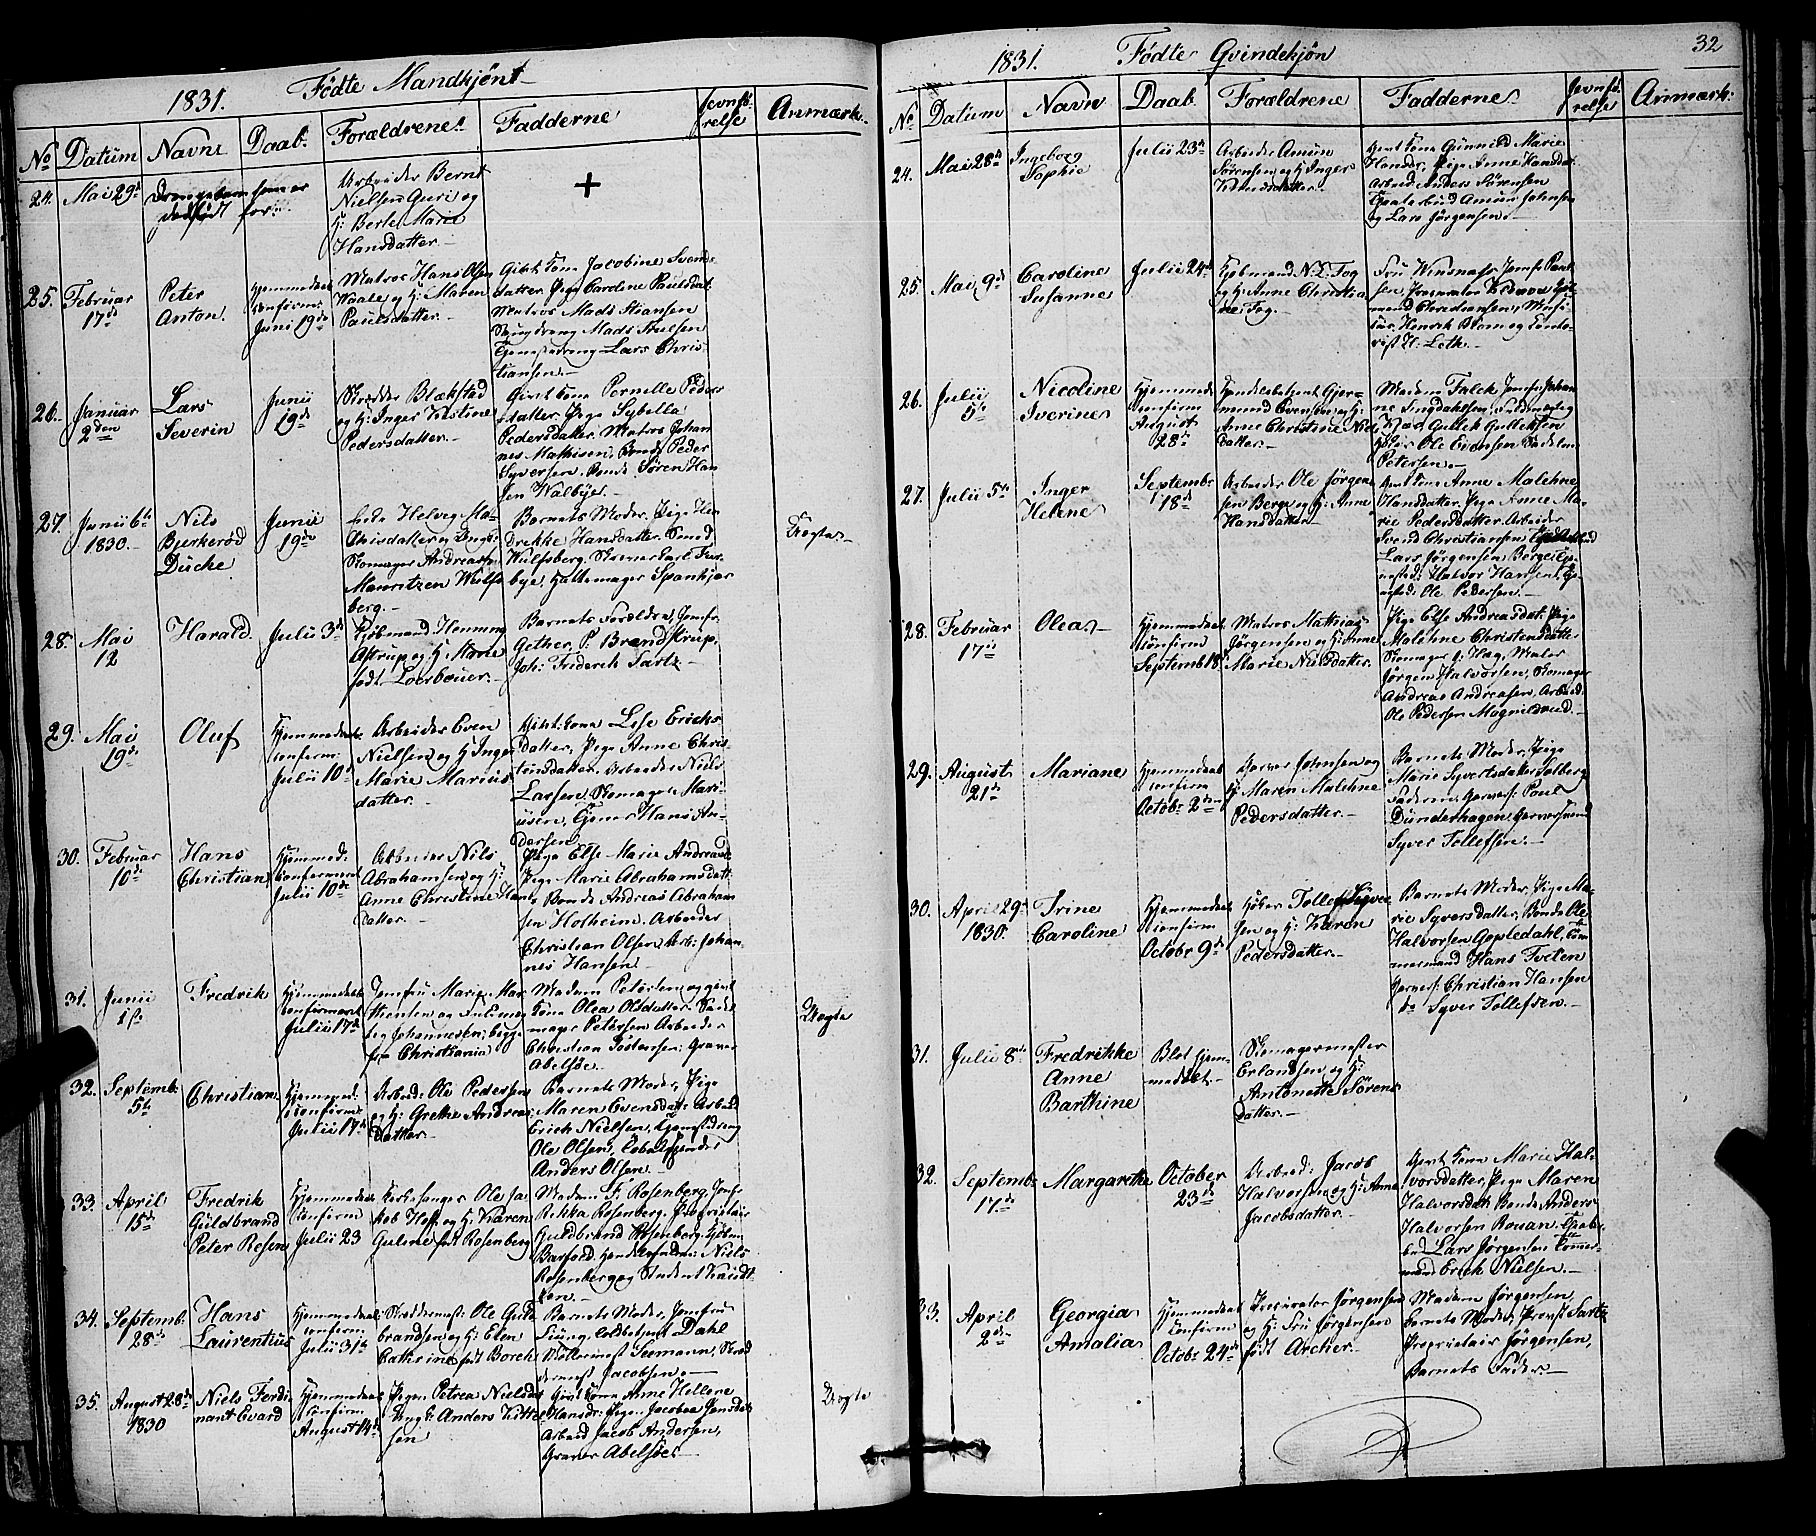 1831. Fødte Mandkjønt
No Datum Navne Daab. Forældrene. Fadderne Jevnfö-
relse Anmærk.
24. Mai 29d Drengebarn som er
dødfødt
Arbeider Bernt
Nielsen Guri og
H: Berte Marie
Hansdatter.
+
25. Februar
17de
Peter
Anton.
Hjemmedøbt
Confirm:
Juni 19de
Matros Hans Olsen
Waale og H: Maren
Paulsdatter.
Givt Kone Jacobine Svends-
datter, Pige Caroline Paulsdat.
Matros Mads Stiansen
Mads Nielsen
Tjenestedreng Lars Chris-
tiansen.
26. Januar
2den
Lars
Severin
Junii
19de
Skræder Blækstad
og H: Inger Kirstine
Pedersdatter.
Givt Kone Pernelle Peders
datter, Pige Sybella
Pedersdatter. Matros Johan-
nes Mathisen, Bonde Peder
Syversen. Bonde Sören Han
sen Walbye.
27. Junii 6te
1830.
Nils
Bjerkerød
Ducke
Junii
19de
Helvig Ma-
thisdatter og Ungk:
Skomager Andreas
Mauritzen Wulfs
berg.
Barnets Moder, Pige Hen
drekke Hansdatter. Smed
Wulfsberg, Skriver Carl Fur-
bye, Hattemager Spankjær
Uægte
28. Mai
12
Harald.
Julii 3de
Kjøbmand Henning
Astrup og H: Marie
født Loerbouer.
Barnets Forældre, Jomfr:
Gether, P. Brandstrup,
Joh: Frederik Sartz.
29. Mai
19de
Oluf
Hjemmedøbt
Confirm:
Julii 10de
Arbeider Even
Nielsen og H: Inger
Marie Marius
datter.
Givt Kone Lise Erichs
datter, Pige Anne Chris-
tensdatter. Arbeider Niels
Larsen, Skomager Mari-
usen, Tjener Hans An-
dersen
30. Februar
10de
Hans
Christian
Hjemmed:
Confirmeret
Julii 10de
Arbeider Nils
Abrahamsen og H:
Anne Christine Hans
datter.
Pige Else Marie Andreasd:
Pige Marie Abrahamsdatt:
Bonde Andreas Abraham
sen Holheim. Arbeider
Christian Olsen, Arb: Johan-
nes Hansen.
31. Junii
1ste
Fredrik
Hjemmedøbt
Confirmeret
Julii 17de
Jomfru Marie Mar
thienten og Fuldmæg
tig Johannesen, begge
fra Christiania.
Madam Petersen og givt
Kone Olea Olsdatter. Sadel
mager Petersen Arbeider
Christian Graver
Abelsöe.
Uægte
32. Septemb.
5te
Christian.
Hjemmed:
Confirm:
Julii 17de
Arbed: Ole Pedersen
og H: Grethe Andreas
datter.
Barnets Moder, Pige
Maren Evensdatt: Arbeid:
Erich Nielsen, Tjenestdreng
Ole Olsen,
Anders Olsen.
33. April
15de
Fredrik
Guldbrand
Peter Resen
Hjemmedøbt
Confirm
Julii 23
Kirkesanger Ole Ja-
kob Hoff og H: Karen
Guline født Rosenberg
Madam F: Rosenberg, Jomf:
Rikka Rosenberg. Proprietair
Guldbrand Rosenberg, Kjøbm
Barfod. Handelsfuldm: Niels
Rosenberg og Student Knudt-
zon.
34. Septemb.
28de
Hans
Laurentius
Hjemmedøbt
Confirm:
Julii 31te
Skrædermest: Ole Guld
brandsen og H: Elen
Cathrine født Borch
Barnets Moder, Jomfru
Dahl
Møllermest: Seemann, Skræd
dermest Jacobsen.
35. August 28de
1830
Niels Ferdi-
nant Evard
Hjemmedøbt
Confirm
August 14de
Pigen Petrea Nielsdat
Ungk: Anders Kittel
sen
Givt Kone Anne Hellene
Hansdr: Pige Jacobea Jensdat:
Arbeid Jacob Andersen,
Graver Abelsöe.
Uægte
1831. Fødte Qvindekjøn 32
No Datum Navn Daab. Forældrene Fadderne. Jevnfö-
relse Anmærk.
24. Mai 28de
Ingeborg
Sophie
Julii 23de
Arbeider Amun
Sörensen og H: Inger
Knudsdatter.
Givt Kone Gunnild Marie
Hansdr, Pige Anne Hansdat.
Arbeid Anders Sörensen
Amun Johnsen
og Lars Jörgensen.
25. Mai 9de
Caroline
Susanne
Julii 24de
Kjøbmand N: L: Fog
og H: Anne Christia
ne Fog.
Fru Winsnæs, Jomfr Paul
sen, Procurator Kjøb-
mand Christiansen,
Henrik Blom og
H: Leth.
26. Julii
5te
Nicoline
Iverine
Hjemmedøbt
Confirm
August
28de
Handelsbetjent Gjer-
mund Evensen og H:
Anne Christine Niels
datter.
Madam Falck Jomfr Johan
ne Ingdahlsen, Fuldmægtig
Kjær, Gullik Gulliksen
Ole Evensen,
Petersen.
27. Julii 5te
Inger
Helene
Septembr
18de
Arbeider Ole Jörgen-
sen Berge og H: Anne
Hansdatter.
Givt Kone Anne Malehne
Hansdatter, Pige Anne Ma-
rie Pedersdatter. Arbeider
Svend Christiansen
Lars Jörgensen Berge,
Halvor Hansen,
Ole Pedersen.
28. Februar
17de
Olea.
Hjemmedøbt
Confirm
Septemb 18de
Matros Mathias
Jörgensen og H: Anne
Marie Nielsdatter.
Pige Else Andreasdat: Pige
Malehne Christensdatter
Skomager J: Hag. Maler
Jörgen Halvorsen, Skomager
Andreas Andreasen, Arbeid:
Ole Pedersen Magnildrud.
29. August
21de
Mariane
Hjemmedøbt
Confirm
Octobr 2den
Garver Johnsen og
H: Maren Malehne
Pedersdatter.
Barnets Moder, Pige
Marie Syversdatter Solberg
Faderen, Garversv: Paul
Dunderhagen, Garversvend
Syver Tollefsen.
30. April 29de
1830.
Trine
Caroline
Hjemmedøbt
Confirm
Octobr 9de
Høker Tollef Syver
sen og H: Karen
Pedersdatter.
Barnets Moder, Pige Ma-
rie Syversdatter, Bonde Ole
Halvorsen Gopledahl, Töm
mermand Hans Tveten
Garversv: Christian Hansen
do Syver Tollefsen.
31. Julii 8de
Fredrikke
Anne
Barthine
Blot hjem-
medøbt.
Skomagermester
Erlandsen og H:
Antonette Sörens
datter.
32. Septemb:
17de
Margarethe
October
23de
Arbeid: Jacob
Halvorsen og H: Anne
Jacobsdatter.
Givt Kone Marie Hal-
vorsdatter, Pige Maren
Halvorsdatt: Bonde Anders
Halvorsen Rouan.
Lars Jörgensen Tømmer-
mand Erich Nielsen.
33. April
2den
Georgia
Amalia
Hjemmedøbt
Confirm
Octobr 24de
Procurator Jörgensen
og H: Fru Jörgensen
født Archer.
Madam Jörgensen,
Barnets Moder, Provst Sartz
Proprietair Jörgensen,
Barnets Fader.